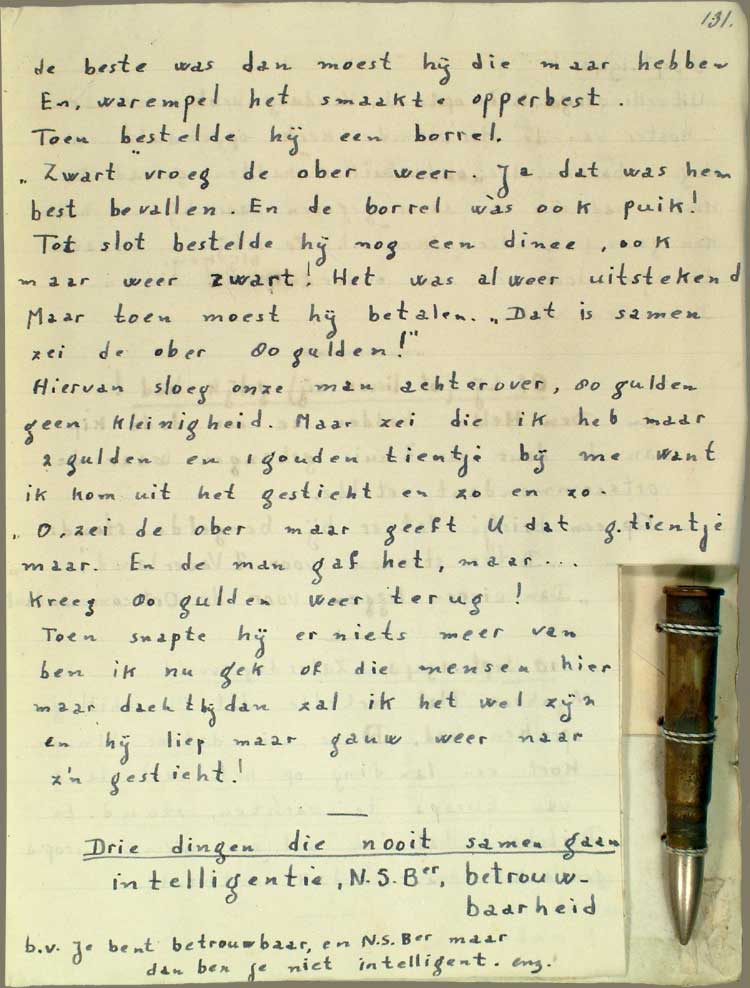 131.
de beste was dan moest hij die maar hebben
En, warempel het smaakte opperbest.
Toen bestelde hij een borrel.
„Zwart" vroeg de ober weer. Ja dat was hem
best bevallen. En de borrel was ook puik!
Tot slot bestelde hij nog een dinee, ook
maar weer zwart! Het was al weer uitstekend
Maar toen moest hij betalen. „Dat is samen
zei de ober 80 gulden!"
Hiervan sloeg onze man achterover, 80 gulden
geen kleinigheid. Maar zei die ik heb maar
2 gulden en 1 gouden tientje bij me want
ik kom uit het gesticht en zo en zo.
„O, zei de ober maar geeft U dat g. tientje
maar. En de man gaf het, maar...
kreeg 80 gulden weer terug!
Toen snapte hij er niets meer van
ben ik nu gek of die mensen hier
maar dacht hij dan zal ik het wel zijn
en hij liep maar gauw weer naar
z'n gesticht!
Drie dingen die nooit samen gaan
intelligentie, N.S.Ber, betrouw-
baarheid
b.v. Je bent betrouwbaar, en N.S.Ber maar
dan ben je niet intelligent. enz.